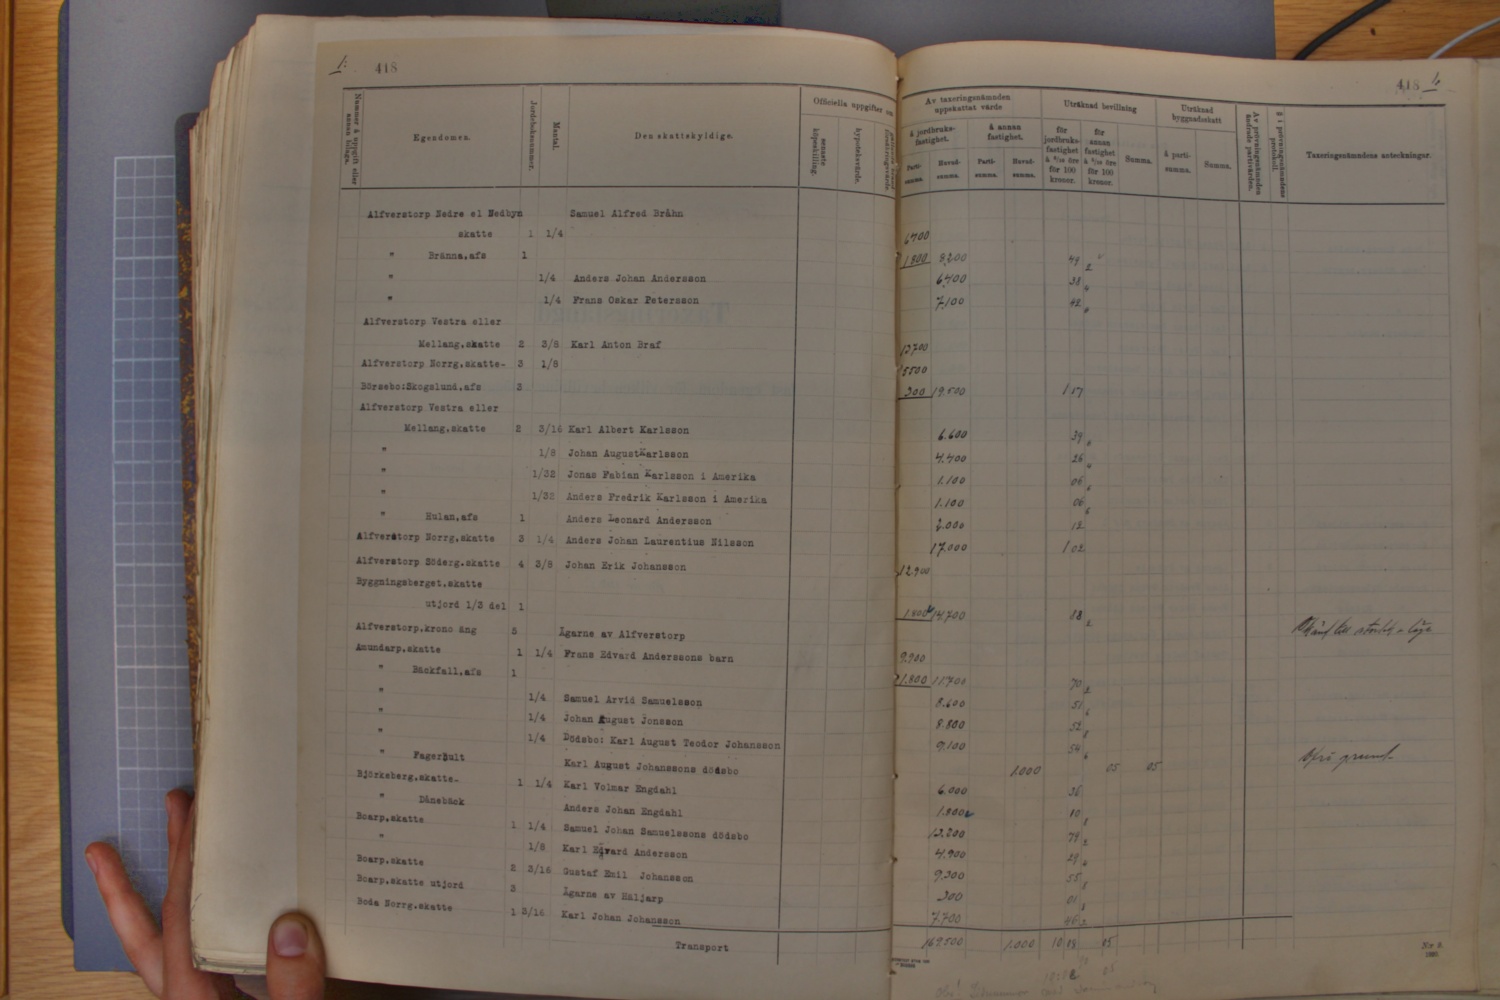 1. 418
418 1.
Nummer å uppgift eller annan bilaga.
Egendomen.
Jordeboksnummer.
Mantal.
Den skattskyldige.
Officiella uppgifter om
senaste köpeskilling.
hypoteksvärde.
Av taxeringsnämnden uppskattat värde
Å jordbruksfastighet.
Å annan fastighet.
Partisumma.
Huvudsumma.
Partisumma.
Huvudsumma.
Uträknad bevillning
för jordbruksfastighet à 6/10 öre för 100 kronor.
för annan fastighet à 5/10 öre för 100 kronor.
Summa.
Uträknad byggnadsskatt
à partisumma.
Summa.
Av prövningsnämnden ändrade partivärden.
§ i prövningsnämndens protokoll.
Taxeringsnämndens anteckningar.
Alfverstorp Nedre el Nedbyn Samuel Alfred Bråhn
skatte 1 1/4 6400
" Bränna,afs 1 1.800 8,200 49 2
" 1/4 Anders Johan Andersson 6,400 38 4
" 1/4 Frans Oskar Petersson 7,100 42 6
Alfverstorp Vestra eller
Mellang.skatte 2 3/8 Karl Anton Braf 13700
Alfverstorp Norrg.skatte- 3 1/8 5500
Börsebo:Skogslund,afs 3 300 19.500 1 17
Alfverstorp Vestra eller
Mellang.skatte 2 3/16 Karl Albert Karlsson 6.600 39 6
" 1/8 Johan August Karlsson 4.400 26 4
" 1/32 Jonas Fabian Karlsson i Amerika 1.100 06 6
" 1/32 Anders Fredrik Karlsson i Amerika 1.100 06 6
" Hulan,afs 1 Anders Leonard Andersson 2.000 12
Alfverstorp Norrg.skatte 3 1/4 Anders Johan Laurentius Nilsson 17.000 1 02
Alfverstorp Söderg.skatte 4 3/8 Johan Erik Johansson 12.900
Byggningsberget.skatte
utjord 1/3 del 1 1.800 14.700 88 2
Alfverstorp,krono äng 3 Ägarne av Alfverstorp
Amundarp.skatte 1 1/4 Frans Edvard Anderssons barn 9.900
" Bäckfall,afs 1 1.800 11.700 70 2
" 1/4 Samuel Arvid Samuelsson 8.600 51 6
" 1/4 Johan August Jonsson 8.800 52 8
" 1/4 Dödsbo: Karl August Teodor Johansson 9.100 54 6
" Fagerhult Karl August Johanssons dödsbo 1.000 05 05
Björkeberg.skatte- 1 1/4 Karl Volmar Engdahl 6.000 36
" Dånebäck Anders Johan Engdahl 1.800 10 8
Boarp.skatte 1 1/4 Samuel Johan Samuelssons dödsbo 13.200 79 2
" 1/8 Karl Edvard Andersson 4.900 29 4
Boarp.skatte 2 3/16 Gustaf Emil Johansson 9.300 55 8
Boarp.skatte utjord 3 Ägarne av Häljarp 300 01 8
Boda Norrg.skatte 1 3/16 Karl Johan Johansson 7.700 46 2
Transport 169500 1.000 10 18 05
Nr 3.